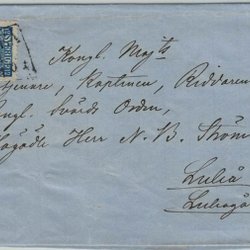 Kongl. Majts
tjenare, Kaptenen, Riddaren
Kongl. Svärds Orden,
Högädle Herr N. B. Ström
Luleå
Luleågå